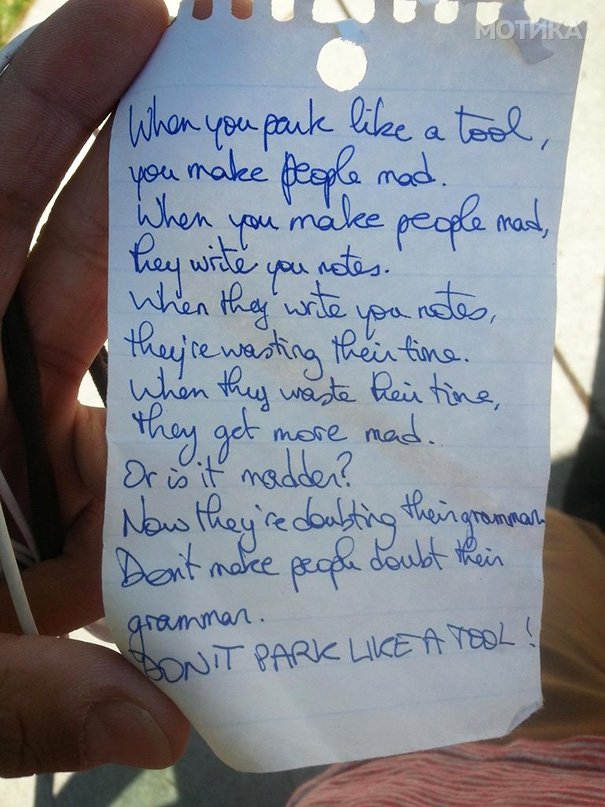 МОТИКА
When you park like a tool,
you make people mad.
When you make people mad,
they write you notes.
When they write you notes,
they're wasting their time.
When they waste their time,
they get more mad.
Or is it madder?
Now they're doubting their grammar
Don't make people doubt their
grammar.
DON'T PARK LIKE A TOOL!